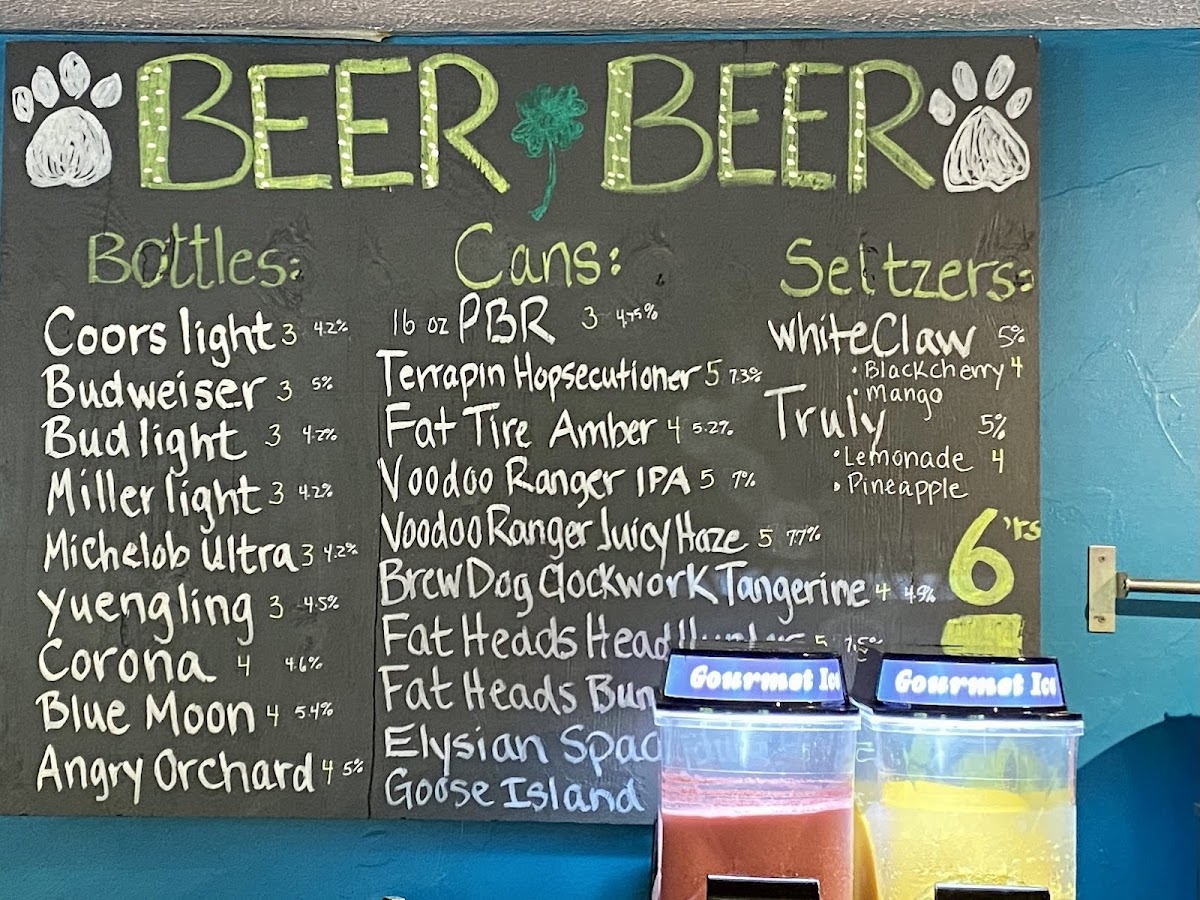 BEER BEER
Bottles:
Coors light 3 4.2%
Budweiser 3 5%
Bud light 3 4.2%
Miller light 3 4.2%
Michelob Ultra 3 4.2%
Yuengling 3 4.5%
Corona 4 4.6%
Blue Moon 4 5.4%
Angry Orchard 4 5%
Cans:
16 oz PBR 3 4.75%
Terrapin Hopsecutioner 5 7.3%
Fat Tire Amber 4 5.2%
Voodoo Ranger IPA 5 7%
Voodoo Ranger Juicy Haze 5 7.7%
BrewDog Clockwork Tangerine 4 4.9%
Fat Heads Head 5 7.5%
Fat Heads Bun
Elysian Spac
Goose Island
Seltzers:
White Claw 5%
• Blackcherry 4
• mango
Truly 5%
• Lemonade 4
• Pineapple
6'rs
Gourmet Ice
Gourmet Ice